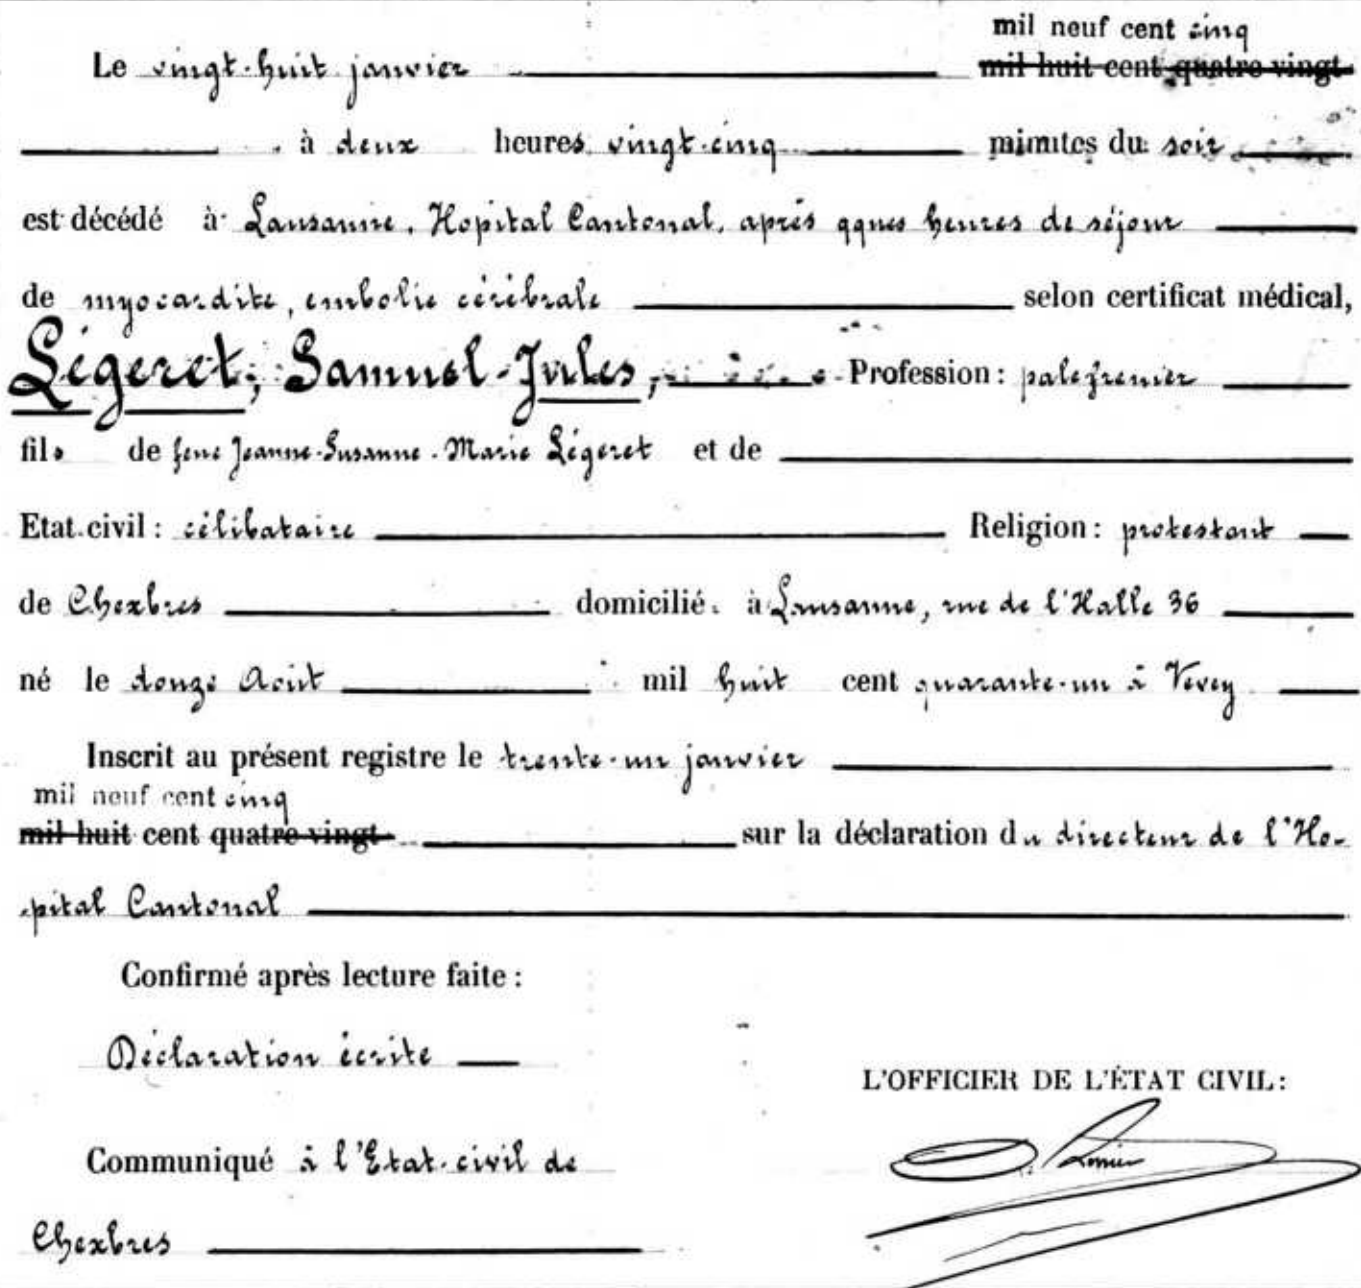 mil neuf cent cinq
Le vingt-huit janvier mil huit cent quatre vingt
à deux heures vingt-cinq minutes du soir
est décédé à Lausanne, Hopital Cantonal, après qques heures de séjour
de myocardite, embolie cérébrale selon certificat médical,
Légeret, Samuel-Jules, Profession: palefrenier
fils de feue Jeanne-Susanne-Marie Légeret et de
Etat civil: célibataire Religion: protestant
de Chexbres domicilié à Lausanne, rue de l'Halle 36
né le douze Août mil huit cent quarante-un à Vevey
Inscrit au présent registre le trente-un janvier
mil neuf cent cinq
mil huit cent quatre vingt sur la déclaration du directeur de l'Ho-
pital Cantonal
Confirmé après lecture faite:
Déclaration écrite
L'OFFICIER DE L'ÉTAT CIVIL:
Communiqué à l'Etat-civil de
Chexbres